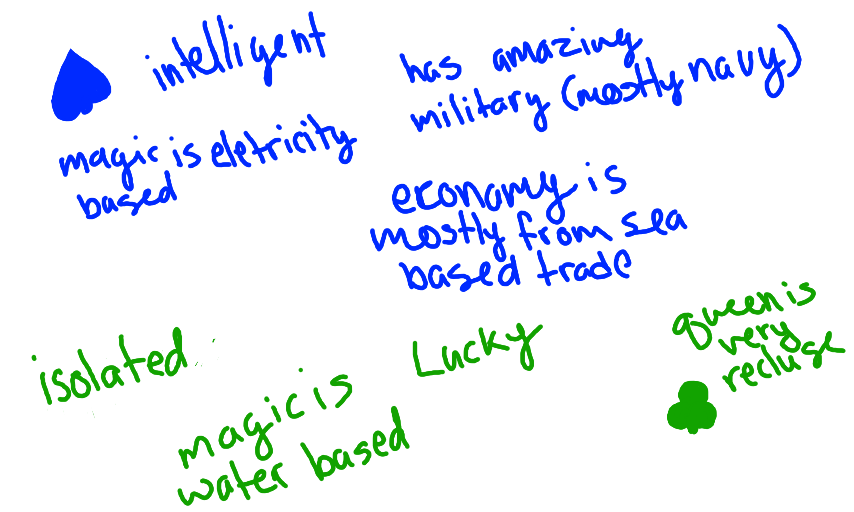 intelligent
has amazing
military (mostly navy)
magic is eletricity
based
economy is
mostly from sea
based trade
isolated
magic is
water based
Lucky
queen is
very
recluse